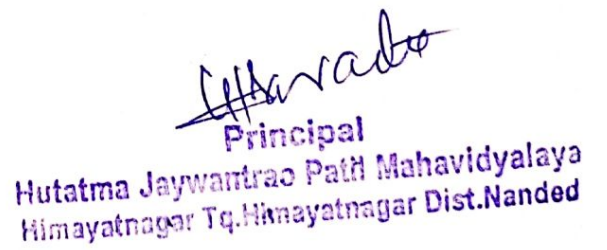 Principal
Hutatma Jaywantrao Patil Mahavidyalaya
Himayatnagar Tq.Himayatnagar Dist.Nanded